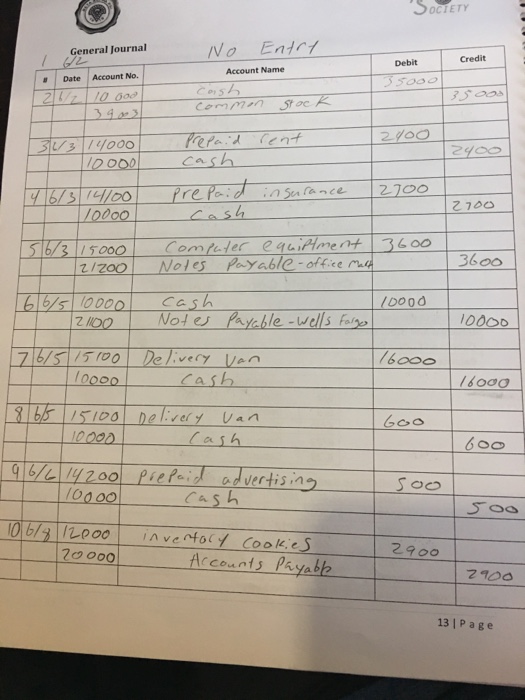 SOCIETY
General Journal
No Entry
1 6/2
# Date Account No. Account Name Debit Credit
2 6/2 10 000 Cash 35000
Common Stock 35000
3 6/3 14000 Prepaid rent 2400
10000 cash 2400
4 6/3 14100 Prepaid insurance 2700
10000 Cash 2700
5 6/3 15000 Computer equiptment 3600
21200 Notes Payable-office max 3600
6 6/5 10000 Cash 10000
21100 Notes Payable-Wells Fargo 10000
7 6/5 15100 Delivery Van 16000
10000 cash 16000
8 6/5 15100 Delivery Van 600
10000 Cash 600
9 6/6 14200 Prepaid advertising 500
10000 Cash 500
10 6/8 12000 inventory Cookies 2900
20000 Accounts Payable 2900
13 | Page